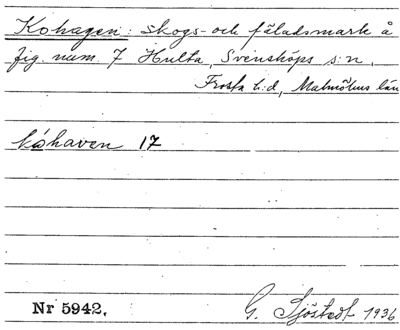 Kohagen: skogs- och fäladsmark å
fig. num. 7 Hulta, Svensköps s:n,
Frosta h:d, Malmöhus län
kóhaven 17
Nr 5942.
G. Sjöstedt 1936